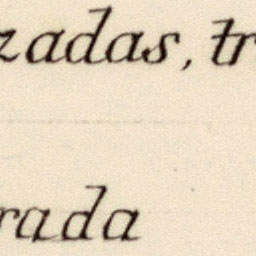 zadas, tr
rada